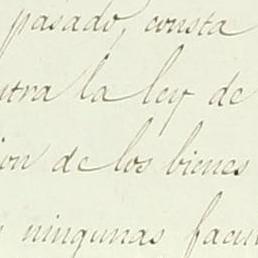 pasado, consta
ntra la ley de
ion de los bienes
ningunas facul